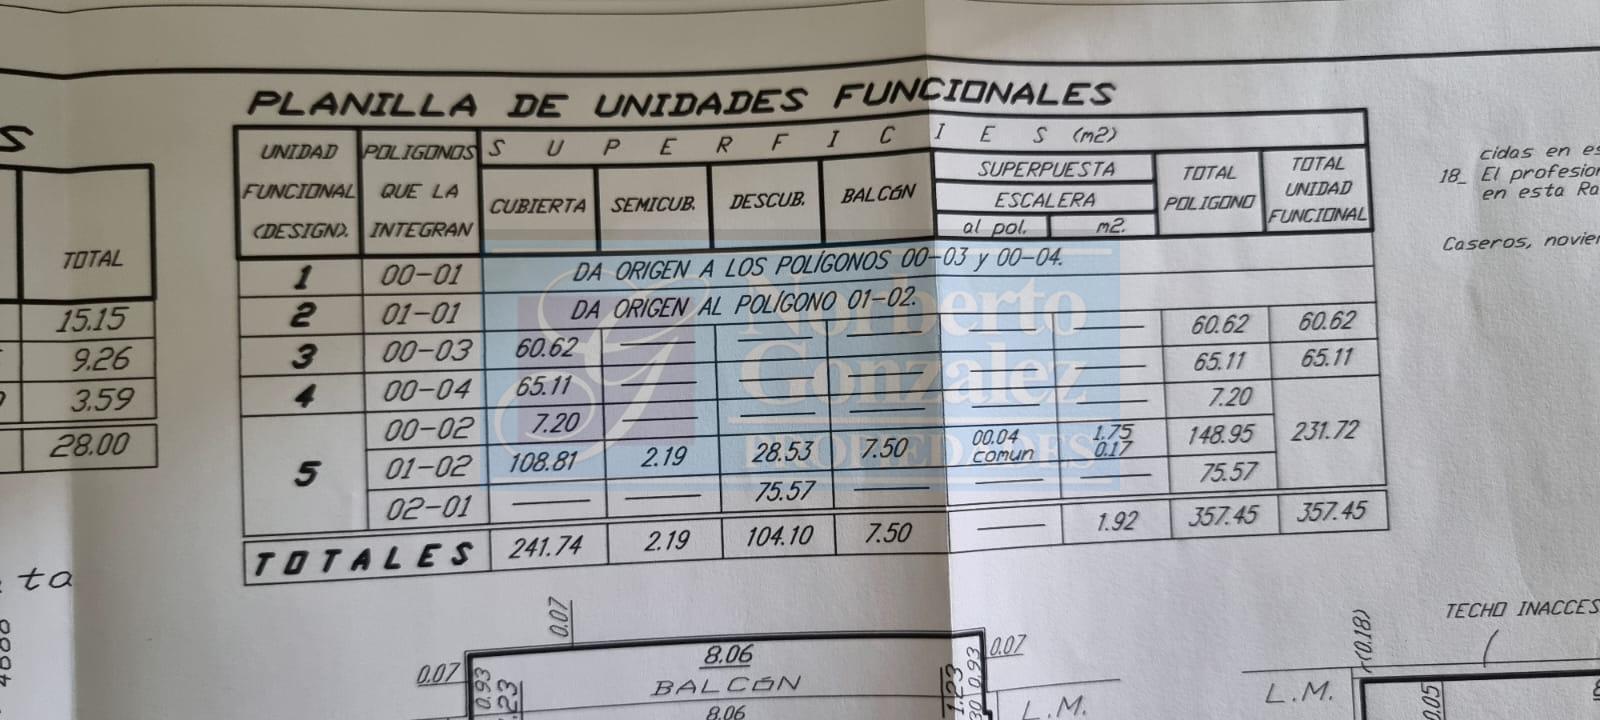 PLANILLA DE UNIDADES FUNCIONALES
UNIDAD FUNCIONAL (DESIGN).
POLIGONOS QUE LA INTEGRAN
SUPERFICIES (m2)
CUBIERTA
SEMICUB.
DESCUB.
BALCÓN
SUPERPUESTA
ESCALERA
al pol.
m2.
TOTAL POLIGONO
TOTAL UNIDAD FUNCIONAL
1 00-01 DA ORIGEN A LOS POLÍGONOS 00-03 y 00-04.
2 01-01 DA ORIGEN AL POLÍGONO 01-02.
3 00-03 60.62 — — — — — 60.62 60.62
4 00-04 65.11 — — — — — 65.11 65.11
5 00-02 7.20 — — — — — 7.20
01-02 108.81 2.19 28.53 7.50 00.04 1.75 148.95 231.72
comun 0.17
02-01 — — 75.57 — — — 75.57
TOTALES 241.74 2.19 104.10 7.50 — 1.92 357.45 357.45
Norberto
Gonzalez
PROPIEDADES
S
TOTAL
15.15
9.26
3.59
28.00
ta
cidas en es
18_ El profesion
en esta Ra
Caseros, novie
0.07
0.07
0.93
1.23
8.06
BALCÓN
8.06
1.23
0.93
0.07
L.M.
(0.18)
TECHO INACCES
L.M.
0.05